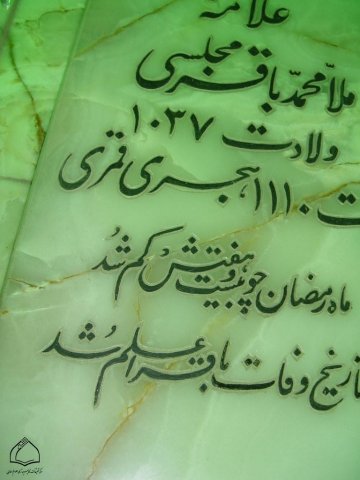 علامه
ملا محمّد باقر مجلسی
ولادت ۱۰۳۷
ت ۱۱۱۰ هجری قمری
ماه رمضان چو بیست و هفتش کم شد
تاریخ وفات باقر اعلم شد